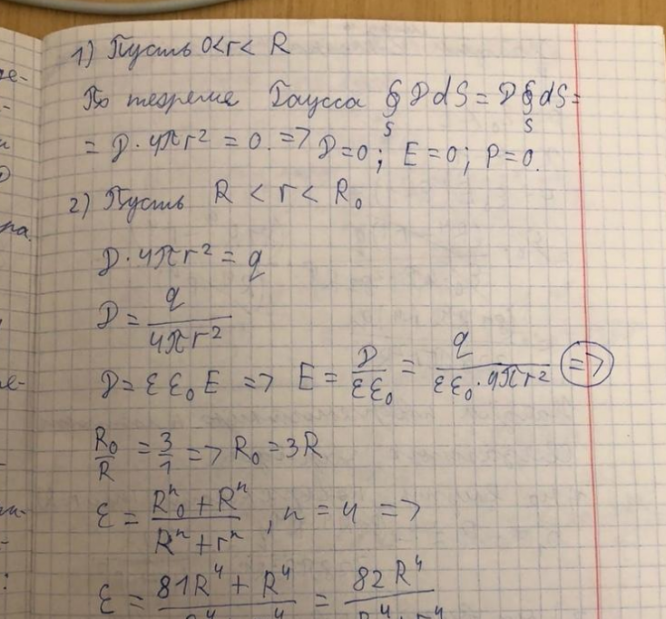 1) Пусть 0<r<R
По теореме Гаусса ∮_S D dS = D ∮_S dS =
= D·4πr² = 0. => D=0; E=0; P=0.
2) Пусть R < r < R₀
D·4πr² = q
D = q / 4πr²
D = εε₀E => E = D / εε₀ = q / εε₀·4πr² =>
R₀/R = 3/1 => R₀ = 3R
ε = (R₀ⁿ + Rⁿ) / (Rⁿ + rⁿ), n = 4 =>
ε = (81R⁴ + R⁴) / = 82R⁴ /